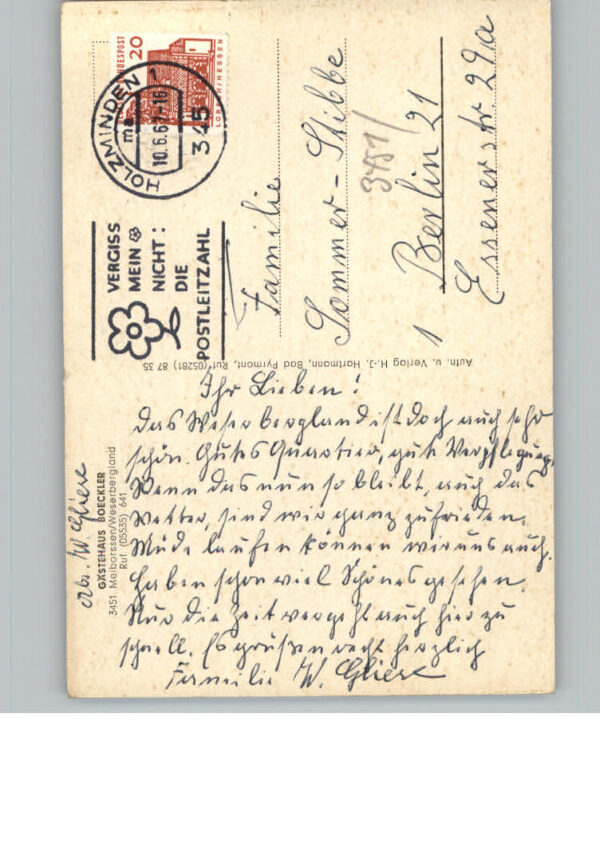 DEUTSCHE BUNDESPOST
20
LORSCH/HESSEN
HOLZMINDEN 1
ma
10.6.67-16
345
VERGISS
MEIN
NICHT:
DIE
POSTLEITZAHL
Familie
Sommer-Stibbe
3451/
1 Berlin 21
Essenerstr. 29a
Aufn. u. Verlag H.-J. Hartmann, Bad Pyrmont, Ruf (05281) 87 35
Abs. W. Gliese
GÄSTEHAUS BOECKLER
3451 Meiborssen/Weserbergland
Ruf (05535) 641
Ihr Lieben!
Das Weserbergland ist doch auch sehr
schön. Gutes Quartier, gute Verpflegung.
Wenn das nun so bleibt, auch das
Wetter, sind wir ganz zufrieden.
Müde laufen können wir uns auch.
Haben schon viel Schönes gesehen.
Nur die Zeit vergeht auch hier zu
schnell. Es grüßen recht herzlich
Familie W. Gliese